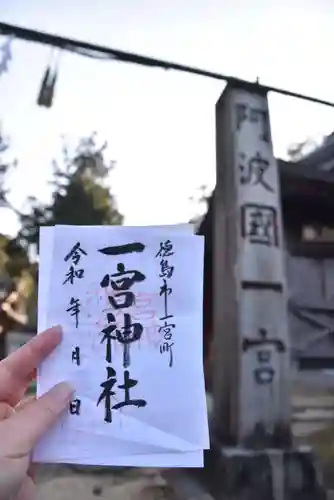 徳島市一宮町
一宮神社
令和 年 月 日
阿波國一宮